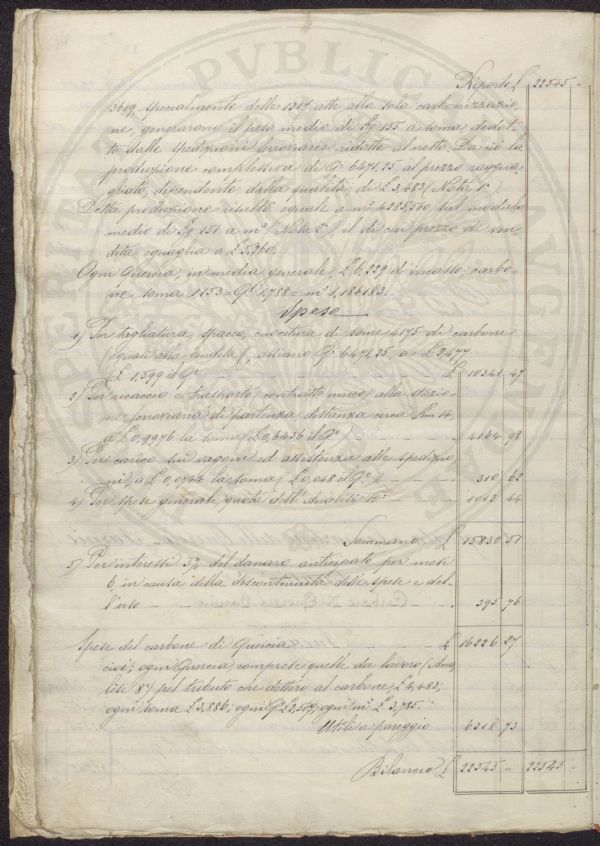 Riporto £ 22545 "
3619, specialmente delle 1317 atte alla sola carbonizzazio
ne, generarono il peso medio di Kg 155 a soma, dedot
to dalle spedizioni ferroviarie ridotte al netto. Da ciò la
produzione complessiva di Q. 6471,25 al prezzo raggua
gliato, dipendente dalla qualità di £ 3,483 (Nota 1ª).
Detta produzione risultò eguale a m.c 4285,560 sul modulo
medio di Kg 151 a m.c (Nota 2ª), il di cui prezzo di ven
dita eguaglia a £ 5,260.
Ogni Quercia, in media generale, £ 6,229 d'incasso; carbo
ne soma 1,153 = Q.li 1,788 = m.c 1,184183.
Spese
1) Per tagliatura, spacco, cuocitura di some 4175 di carbone
(eguali alla vendita), ossiano Q.li 6471,25, a £ 2,477
(£ 1,599 il Q.le) £ 10341 47
2) Per ricaccio e trasporto (contratto unico) alla stazio
ne ferroviaria di partenza, distanza circa Km. 14
a £ 0,9976 la soma (£ 0,6436 il Q.le) 4164 98
3) Per carico sui vagoni ed assistenza alle spedizio
ni, a £ 0,0744 la soma (£ 0,048 il Q.le) 310 62
4) Per spese generali quota dell'Analisi 10ª 1013 44
Sommano £ 15830 51
5) Per interessi 5% del danaro anticipato per mesi
6, in causa della discontinuità delle spese e del
l'esito 395 76
Spese del carbone di Quercia £ 16226 27
cioè; ogni Quercia, comprese quelle da lavoro (Ana
lisi 8ª) pel tributo che dettero al carbone, £ 4,483;
ogni soma £ 3,886; ogni Q.le £ 2,507; ogni m.c £ 3,785.
Utili a pareggio 6318 73
Bilancio £ 22545 " 22545 "
PVBLICA